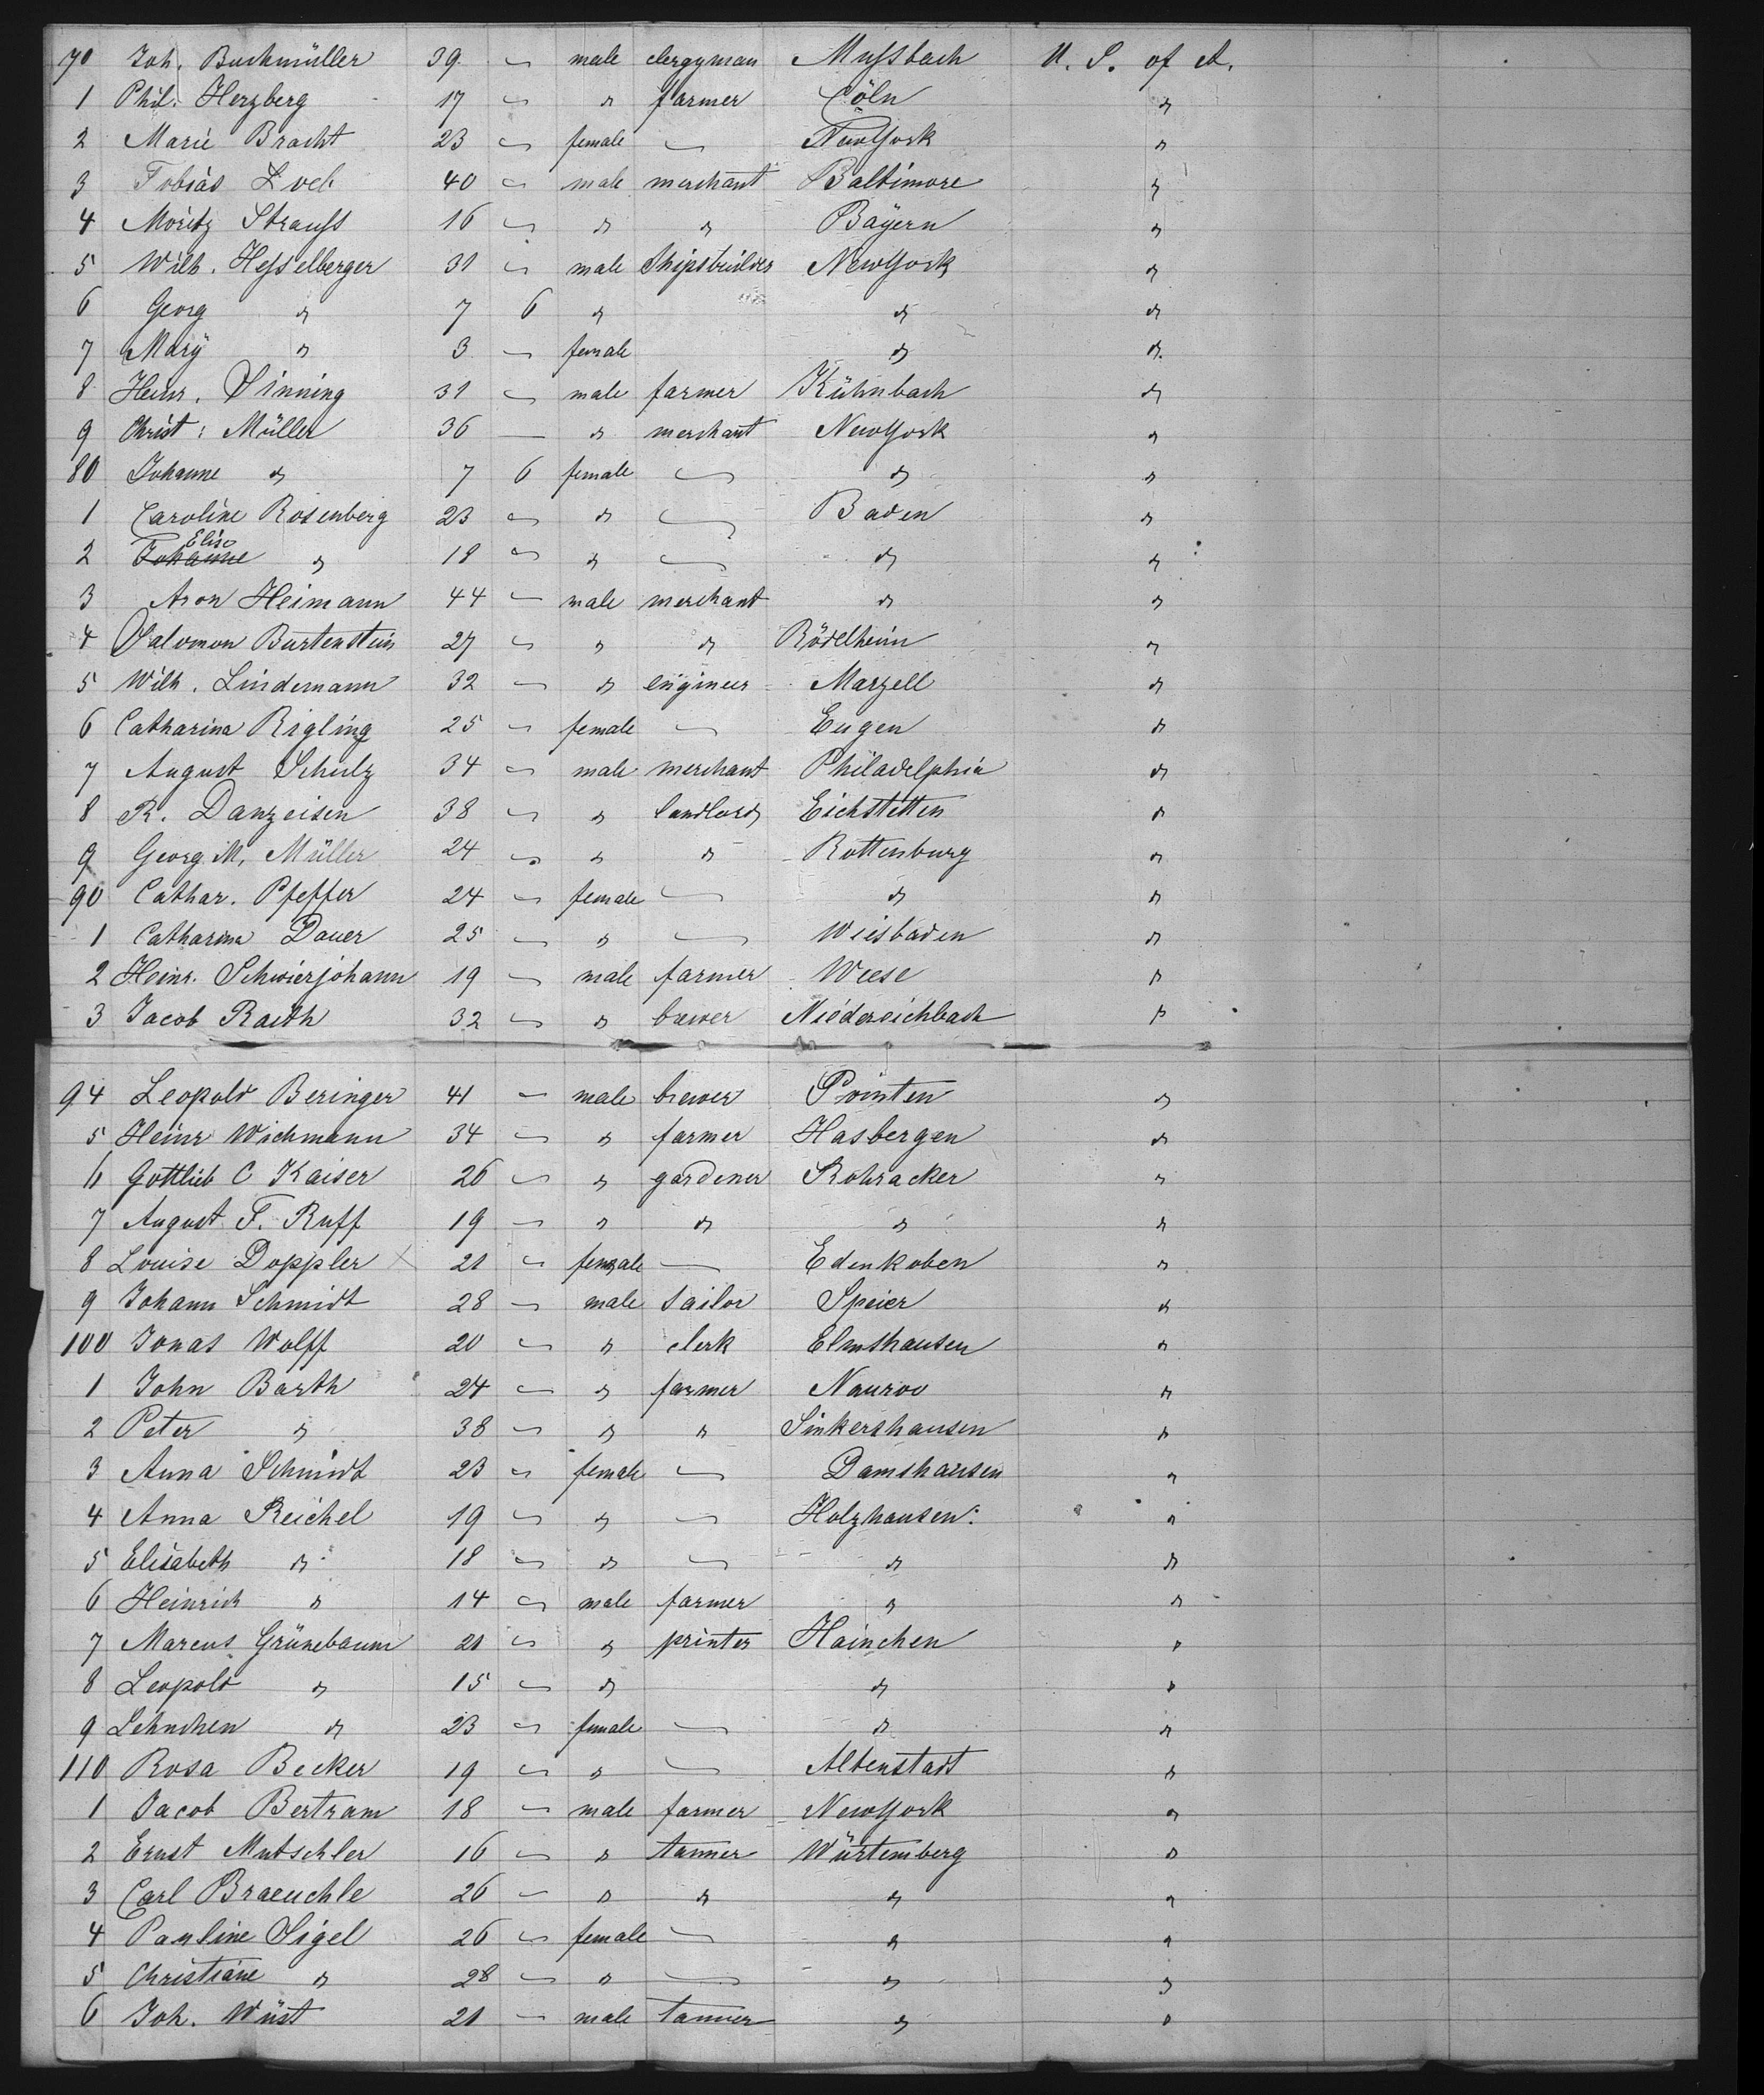 70 Joh. Buchmüller 39 — male clergyman Mussbach U. S. of A.
1 Phil. Herzberg 17 — " farmer Cöln "
2 Marie Bracht 23 — female — NewYork "
3 Tobias Loeb 40 — male merchant Baltimore "
4 Moritz Strauss 16 — " " Bayern "
5 Wilh. Hesselberger 31 — male Shipsbuilder NewYork "
6 Georg " 7 6 " " "
7 Mary " 3 — female " "
8 Heinr. Sinning 31 — male farmer Kühnbach "
9 Christ: Müller 36 — " merchant NewYork "
80 Johanne " 7 6 female — " "
1 Caroline Rosenberg 23 — " — Baden "
2 Johanne Elise " 18 — " — " "
3 Aron Heimann 44 — male merchant " "
4 Salomon Burtenstein 27 — " " Rödelheim "
5 Wilh. Lindemann 32 — " engineer Marzell "
6 Catharina Rigling 25 — female — Eugen "
7 August Schulz 34 — male merchant Philadelphia "
8 R. Danzeisen 38 — " landlord Eichstetten "
9 Georg M. Müller 24 — " " Rottenburg "
90 Cathar. Pfeffer 24 — female — " "
1 Catharina Dauer 25 — " — Wiesbaden "
2 Heinr. Schwierjohann 19 — male farmer Weese "
3 Jacob Raith 32 — " brewer Niedereichbach "
94 Leopold Beringer 41 — male brewer Pointen "
5 Heinr Wichmann 34 — " farmer Hasbergen "
6 Gottlieb C Kaiser 26 — " gardener Rohracker "
7 August F. Ruff 19 — " " " "
8 Louise Doppler 21 — female — Edenkoben "
9 Johann Schmidt 28 — male tailor Speier "
100 Jonas Wolff 20 — " clerk Elmshausen "
1 John Barth 24 — " farmer Nauroo "
2 Peter " 38 — " " Sinkershausen "
3 Anna Schmidt 23 — female — Damshausen "
4 Anna Reichel 19 — " — Holzhausen "
5 Elisabeth " 18 — " — " "
6 Heinrich " 14 — male farmer " "
7 Marcus Grünebaum 21 — " printer Hainchen "
8 Leopold " 15 — " " "
9 Lehnchen " 23 — female — " "
110 Rosa Becker 19 — " — Altenstadt "
1 Jacob Bertram 18 — male farmer NewYork "
2 Ernst Mutschler 16 — " tanner Würtemberg "
3 Carl Braeuchle 26 — " " " "
4 Pauline Sigel 26 — female — " "
5 Christiane " 28 — " — " "
6 Joh. Wüst 21 — male tanner " "